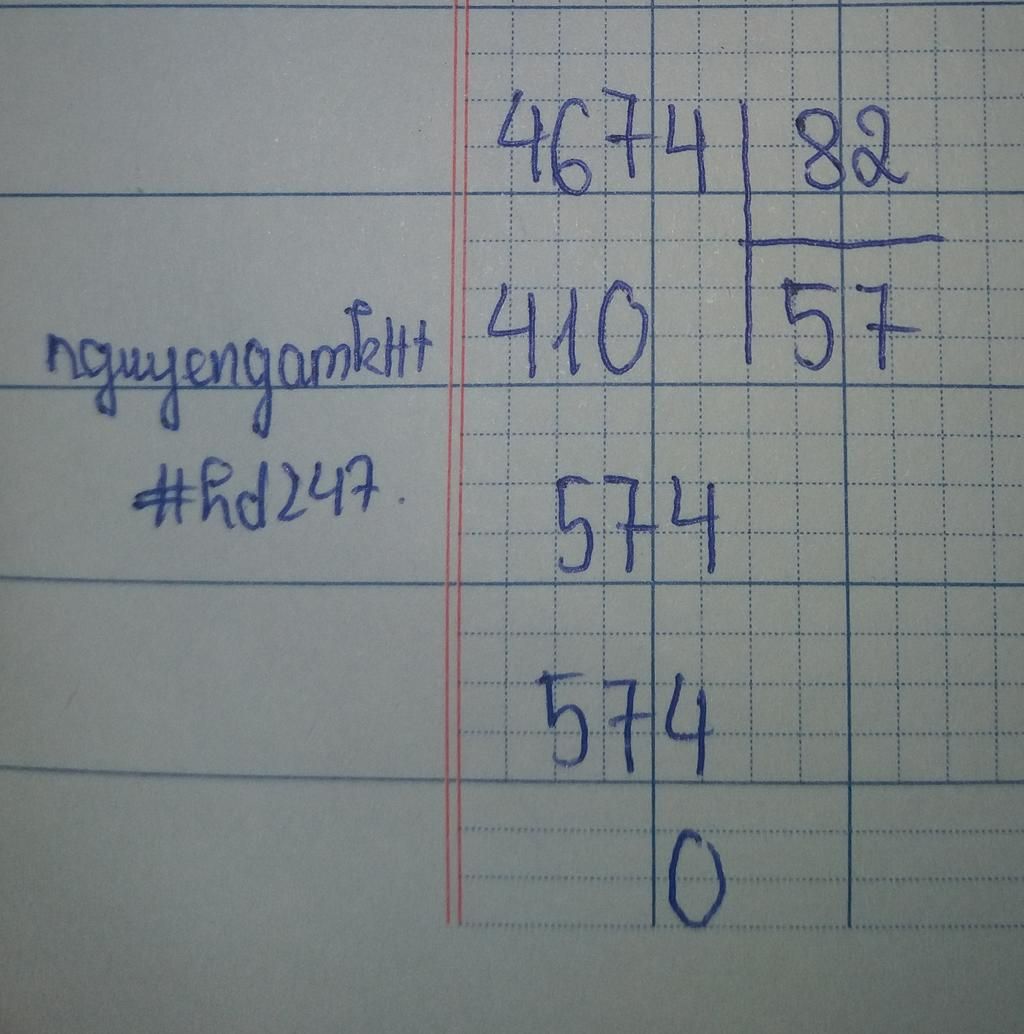 4674 82
410 57
nguyengamkttt
#hd247.
574
574
0